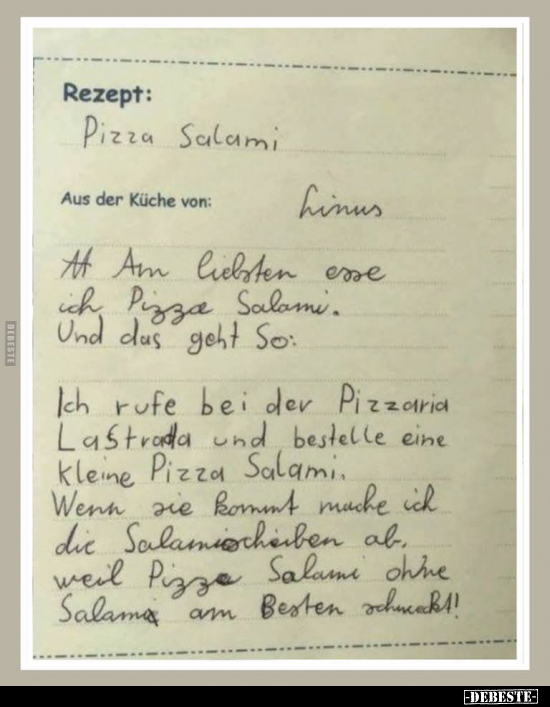 Rezept:
Pizza Salami
Aus der Küche von: Linus
Am liebsten esse
ich Pizza Salami.
Und das geht so:
Ich rufe bei der Pizzaria
LaStrada und bestelle eine
kleine Pizza Salami.
Wenn sie kommt mache ich
die Salamischeiben ab,
weil Pizza Salami ohne
Salami am Besten schmeckt!
DEBESTE
-DEBESTE-